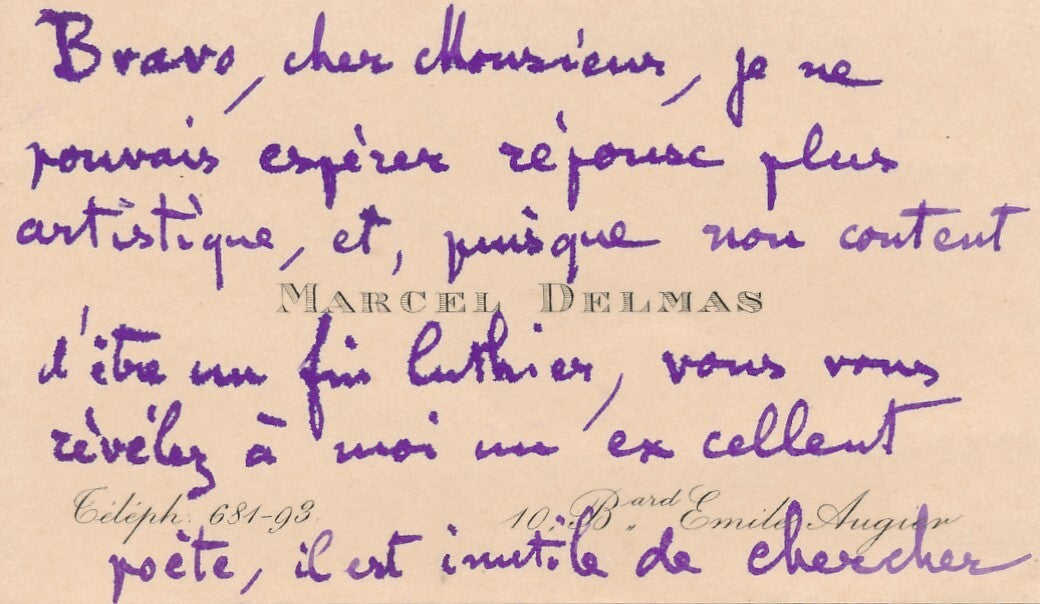 Bravo, cher Monsieur, je ne
pouvais espérer réponse plus
artistique, et, puisque non content
MARCEL DELMAS
d'être un fin luthier, vous vous
révélez à moi un excellent
Téléph. 681-93. 10, Bard Emile Augier
poète, il est inutile de chercher